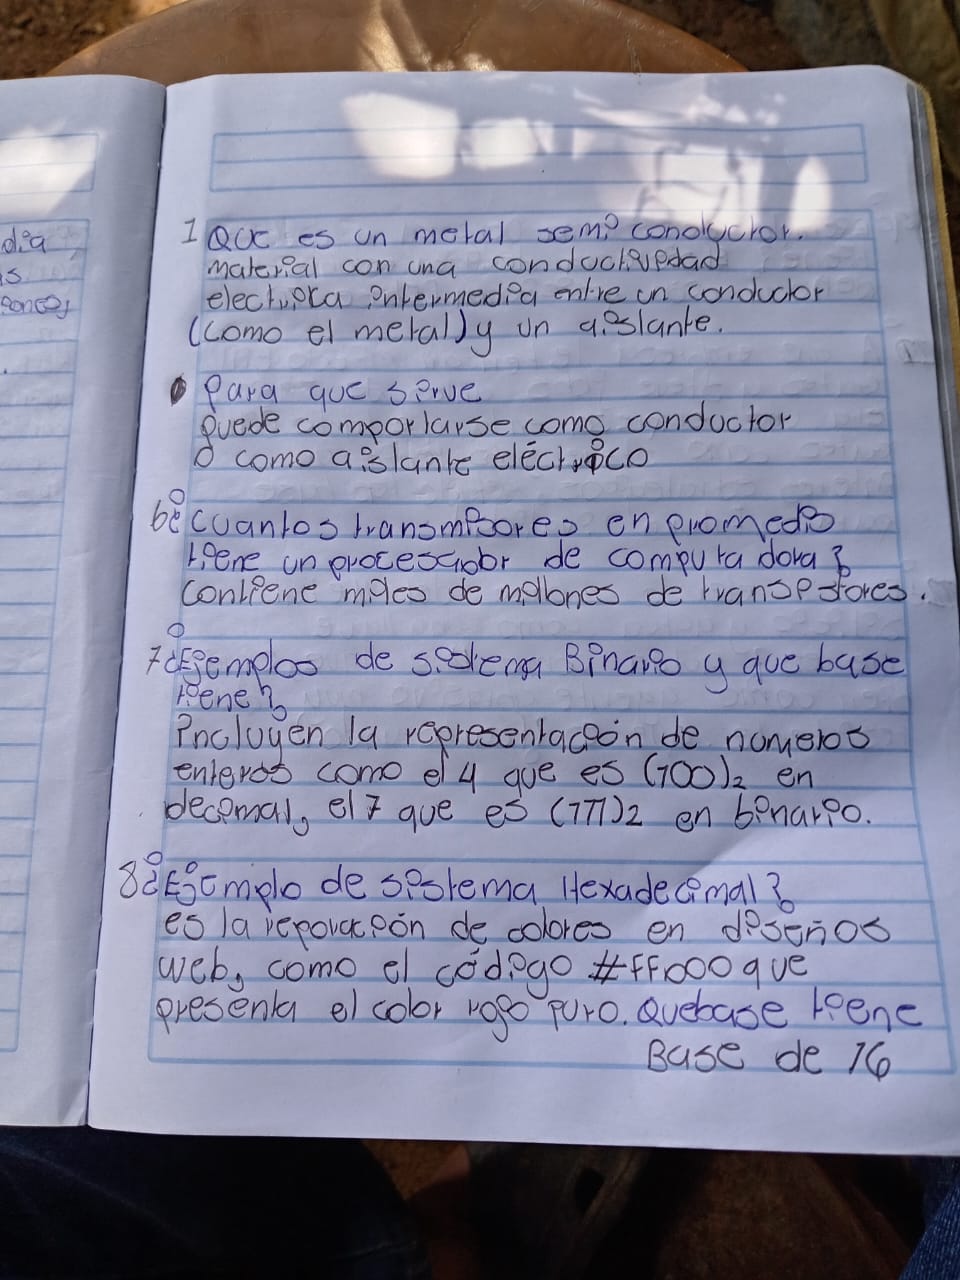 dia
1 Que es un metal semi conductor.
material con una conductividad
electrica intermedia entre un conductor
(como el metal) y un aislante.
Para que sirve
puede comportarse como conductor
o como aislante eléctrico
6¿ cuantos transmisores en promedio
tiene un procesador de computadora?
contiene miles de millones de transistores.
7¿Ejemplos de sistema Binario y que base
tiene?
incluyen la representación de numeros
enteros como el 4 que es (100)2 en
decimal, el 7 que es (111)2 en binario.
8¿Ejemplo de sistema Hexadecimal?
es la de colores en diseños
web, como el código #FF1000 que
presenta el color rogo puro. Que base tiene
Base de 16